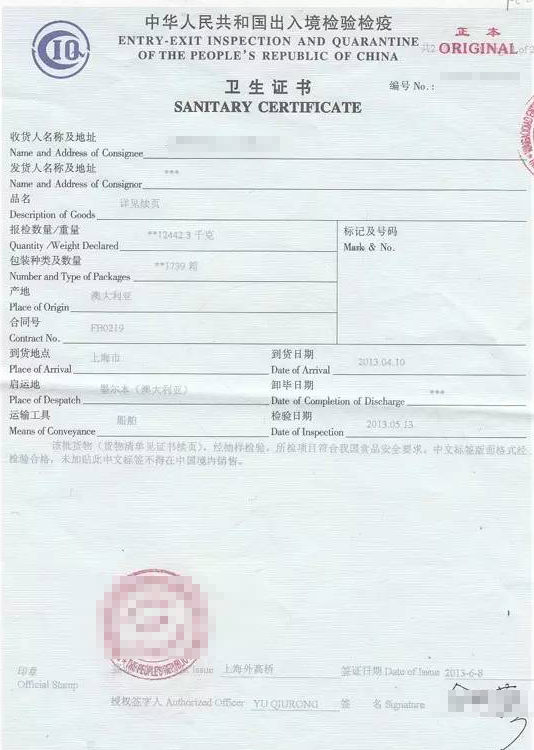 CIQ
中华人民共和国出入境检验检疫
ENTRY-EXIT INSPECTION AND QUARANTINE
OF THE PEOPLE'S REPUBLIC OF CHINA
正本
ORIGINAL
共2 of 2
卫生证书
SANITARY CERTIFICATE
编号 No.:
收货人名称及地址
Name and Address of Consignee
发货人名称及地址 ***
Name and Address of Consignor
品名 详见续页
Description of Goods
报检数量/重量 **12442.3 千克
Quantity /Weight Declared
标记及号码
Mark & No.
包装种类及数量 **1739 箱
Number and Type of Packages
产地 澳大利亚
Place of Origin
合同号 FH0219
Contract No.
到货地点 上海市
Place of Arrival
到货日期 2013.04.10
Date of Arrival
启运地 墨尔本（澳大利亚）
Place of Despatch
卸毕日期 ***
Date of Completion of Discharge
运输工具 船舶
Means of Conveyance
检验日期 2013.05.13
Date of Inspection
该批货物（货物清单见证书续页），经抽样检验，所检项目符合我国食品安全要求。中文标签版面格式经
检验合格，未加贴此中文标签不得在中国境内销售。
印章
Official Stamp
Issue 上海外高桥
签证日期 Date of Issue 2013-6-8
授权签字人 Authorized Officer YU QIURONG
签 名 Signature